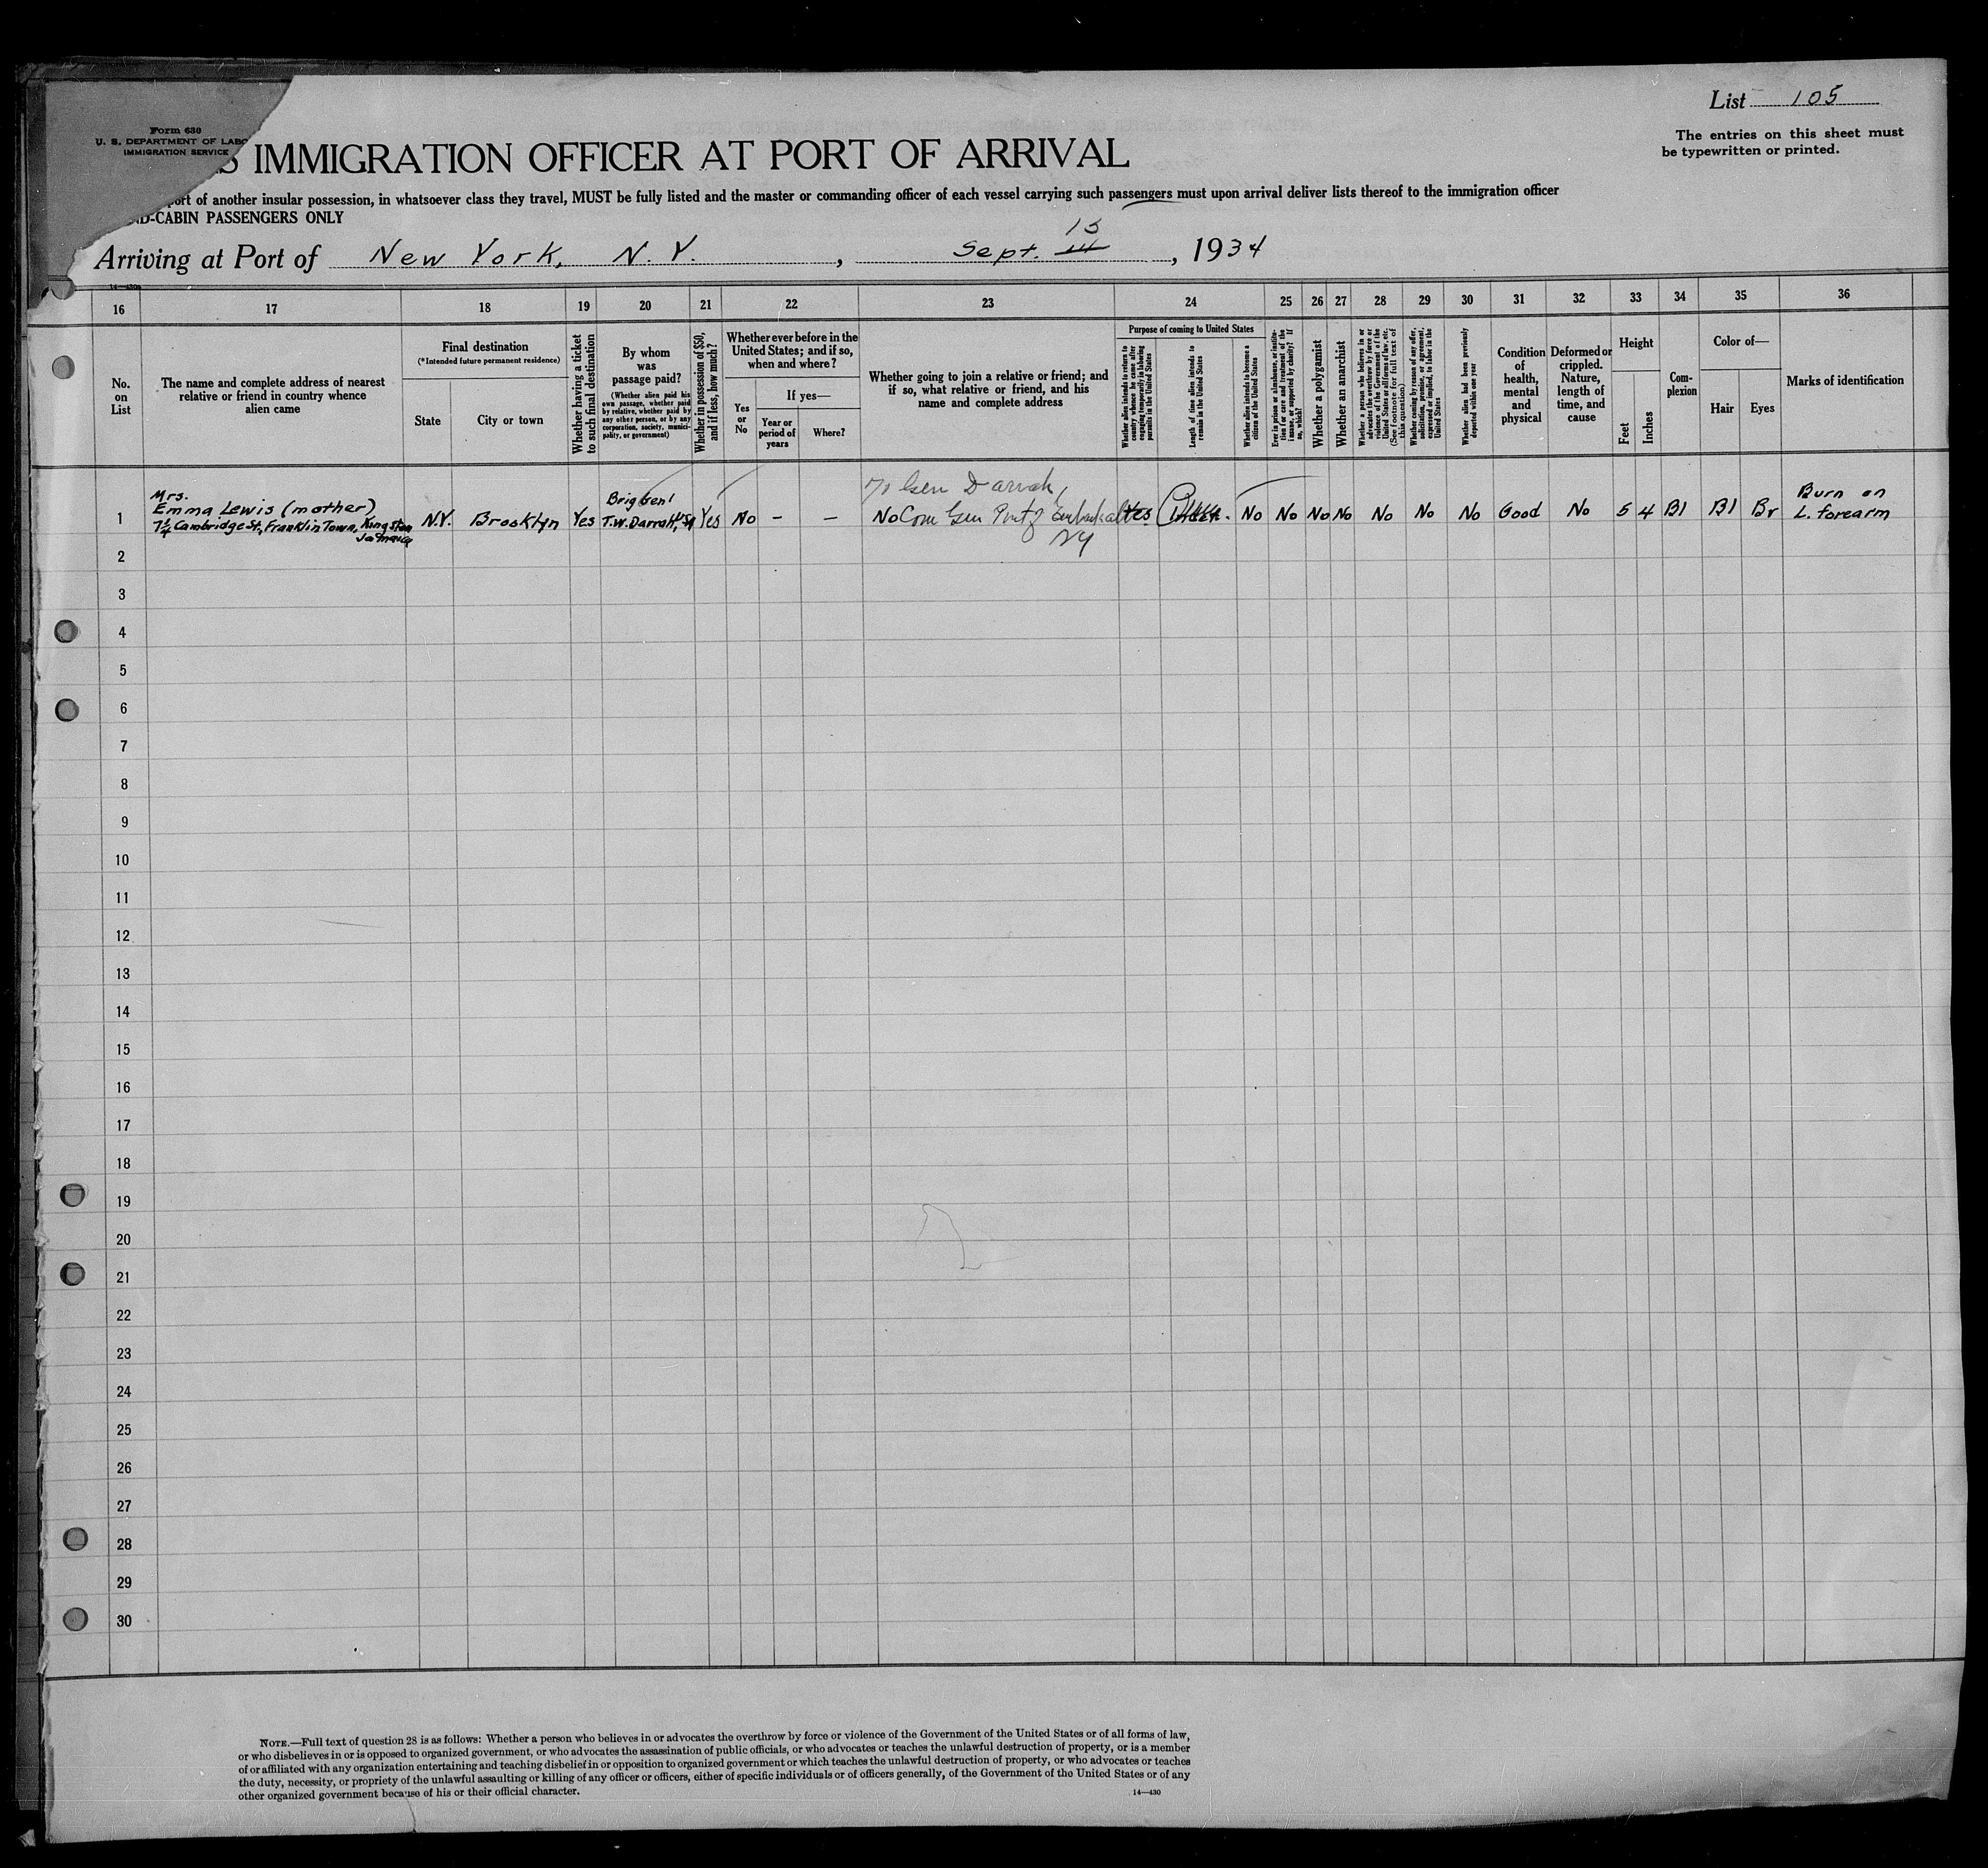 List 105
The entries on this sheet must
be typewritten or printed.
Form 630
U. S. DEPARTMENT OF LABO
IMMIGRATION SERVICE
S IMMIGRATION OFFICER AT PORT OF ARRIVAL
port of another insular possession, in whatsoever class they travel, MUST be fully listed and the master or commanding officer of each vessel carrying such passengers must upon arrival deliver lists thereof to the immigration officer
ND-CABIN PASSENGERS ONLY
15
Arriving at Port of New York, N. Y. , Sept. 14 , 1934
16 17 18 19 20 21 22 23 24 25 26 27 28 29 30 31 32 33 34 35 36
No.
on
List
The name and complete address of nearest
relative or friend in country whence
alien came
Final destination
(*Intended future permanent residence)
State
City or town
Whether having a ticket
to such final destination
By whom
was
passage paid?
(Whether alien paid his
own passage, whether paid
by relative, whether paid by
any other person, or by any
corporation, society, munici-
pality, or government)
Whether in possession of $50,
and if less, how much?
Whether ever before in the
United States; and if so,
when and where?
Yes
or
No
If yes—
Year or
period of
years
Where?
Whether going to join a relative or friend; and
if so, what relative or friend, and his
name and complete address
Purpose of coming to United States
Whether alien intends to return to
country whence he came after
engaging temporarily in laboring
pursuits in the United States
Length of time alien intends to
remain in the United States
Whether alien intends to become a
citizen of the United States
Ever in prison or almshouse, or institu-
tion for care and treatment of the
insane, or supported by charity? If
so, which?
Whether a polygamist
Whether an anarchist
Whether a person who believes in or
advocates the overthrow by force or
violence of the Government of the
United States or all forms of law, etc.
(See footnote for full text of
this question)
Whether coming by reason of any offer,
solicitation, promise, or agreement,
expressed or implied, to labor in the
United States
Whether alien had been previously
deported within one year
Condition
of
health,
mental
and
physical
Deformed or
crippled.
Nature,
length of
time, and
cause
Height
Feet
Inches
Com-
plexion
Color of—
Hair
Eyes
Marks of identification
Mrs.
Emma Lewis (mother)
7¼ Cambridge St., Franklin Town, Kingston
Jamaica
1 N.Y. Brooklyn Yes
Brig Gen'
T.W. Darrah, Yes No – –
To Gen Darrah,
No Com Gen Port of
NY
Yes No No No No No No No Good No 5 4 Bl Bl Br
Burn on
L. forearm
2
3
4
5
6
7
8
9
10
11
12
13
14
15
16
17
18
19
20
21
22
23
24
25
26
27
28
29
30
NOTE.—Full text of question 28 is as follows: Whether a person who believes in or advocates the overthrow by force or violence of the Government of the United States or of all forms of law,
or who disbelieves in or is opposed to organized government, or who advocates the assassination of public officials, or who advocates or teaches the unlawful destruction of property, or is a member
of or affiliated with any organization entertaining and teaching disbelief in or opposition to organized government or which teaches the unlawful destruction of property, or who advocates or teaches
the duty, necessity, or propriety of the unlawful assaulting or killing of any officer or officers, either of specific individuals or of officers generally, of the Government of the United States or of any
other organized government because of his or their official character.
14—430